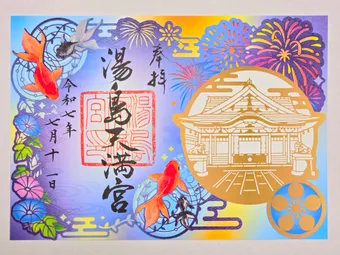 奉拝
湯島天満宮
令和七年
七月十一日